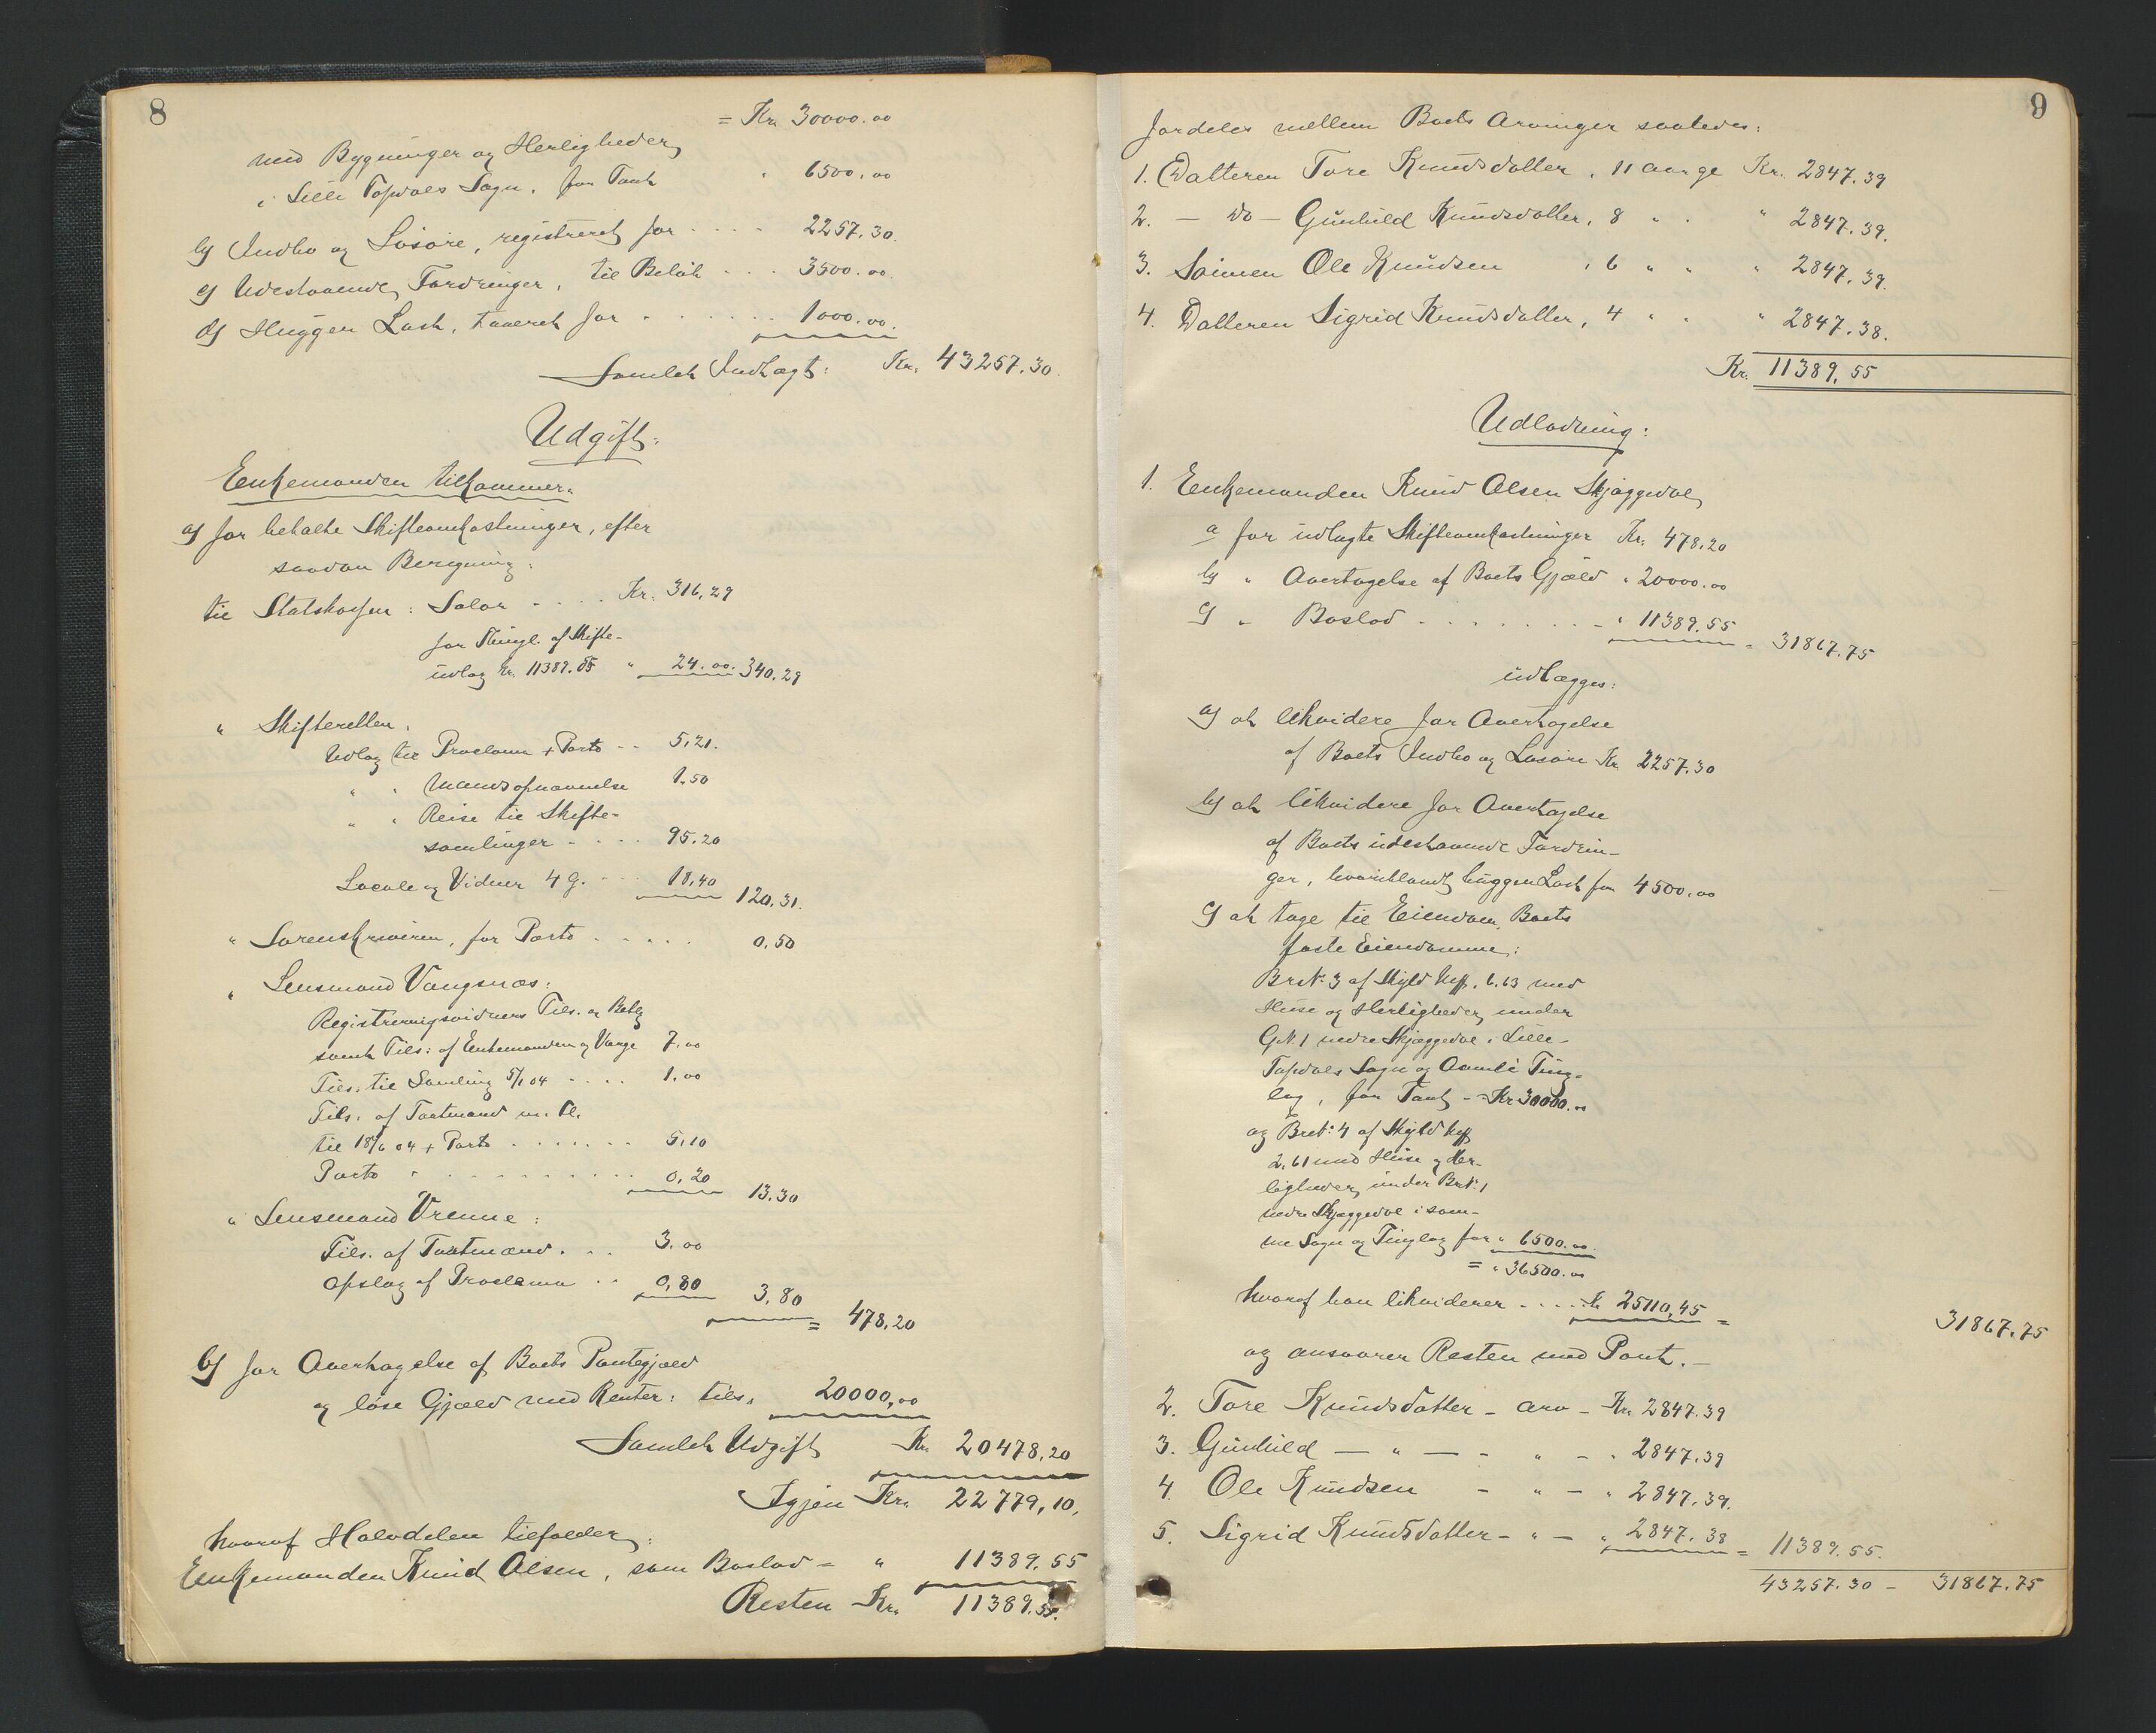 8
= Kr. 30000.00
med Bygninger og Herligheder,
i Lille Topdals Sogn, for Taxt " 6500.00
b) Indbo og Løsøre, registreret for .... 2257.30.
c) Udestaaende Fordringer, til Beløb ... 3500.00.
d) Huggen Last, taxeret for ...... 1000.00.
Samlet Indtægt: Kr. 43257.30.
Udgift:
Enkemanden tilkommer:
a) for betalte Skifteomkostninger, efter
saadan Beregning:
til Statskassen: Salær .... Kr. 316,29
for Thingl. af Skifte-
udlæg Kr. 11389.55 " 24.00. 340.29
" Skifteretten:
Udlæg til Proclama + Porto .. 5,21.
" " Mandsopnævnelse 1.50
" " Reise til Skifte-
samlinger .... 95.20
Locale og Vidner 4 g. ... 18,40 120,31.
" Sorenskriveren, for Porto ..... 0,50
" Lensmand Vangsnæs:
Registreringsvidners Tils. og Betlg
samt Tils: af Enkemanden og Værge 7.00
Tils. til Samling 5/1 04 .... 1.00
Tils. af Taxtmænd m. Fl.
til 18/6 04 + Porto ...... 5,10
Porto .......... 0,20 13.30
" Lensmand Vrenne:
Tils. af Taxtmænd. .. 3.00
Opslag af Proclama .. 0,80 3,80
= 478,20
b) for Overtagelse af Boets Pantegjæld
og løse Gjæld med Renter: tils. 20000,00
Samlet Udgift Kr. 20478,20
Igjen Kr. 22779,10.
hvoraf Halvdelen tilfalder,:
Enkemanden Knud Olsen, som Boslod = " 11389.55
Resten Kr. 11389.55.
9
fordeles mellem Boets Arvinger saaledes:
1. Datteren Tore Knudsdatter, 11 aar ge Kr. 2847.39
2. — Do — Gunhild Knudsdatter, 8 " " " 2847.39.
3. Sønnen Ole Knudsen , 6 " " " 2847,39.
4. Datteren Sigrid Knudsdatter, 4 " " " 2847.38.
Kr. 11389,55
Udlodning:
1. Enkemanden Knud Olsen Skjæggedal,
a for udlagte Skifteomkostninger Kr. 478,20
b) " Overtagelse af Boets Gjæld " 20000.00
c) " Boslod ......... " 11389.55 = 31867.75
udlægges:
a) at likvidere for Overtagelse
af Boets Indbo og Løsøre Kr. 2257.30
b) at likvidere for Overtagelse
af Boets udestaaende Fordrin-
ger, hvoriblandt huggen Last for 4500.00
c) at tage til Eiendom, Boets
faste Eiendomme:
BrN: 3 af Skyld Mk. 6.63 med
Huse og Herligheder, under
GN. 1 nedre Skjæggedal i Lille-
Topdals Sogn og Aamli Ting-
lag, for Taxt - = Kr 30000.00
og BrN: 4 af Skyld Mk
2,61 med Huse og Her-
ligheder, under BrN: 1
nedre Skjæggedal i sam-
me Sogn og Tinglag for " 6500.00.
= " 36500.00
hvoraf han likviderer ..... Kr 25110,45 = 31867.75
og ansvarer Resten med Pant. —
2. Tore Knudsdatter - arv - Kr. 2847.39
3. Gunhild — " — - " - " 2847.39
4. Ole Knudsen - " - " 2847.39.
5. Sigrid Knudsdatter - " - " 2847.38 = 11389.55.
43257.30 - 31867.75